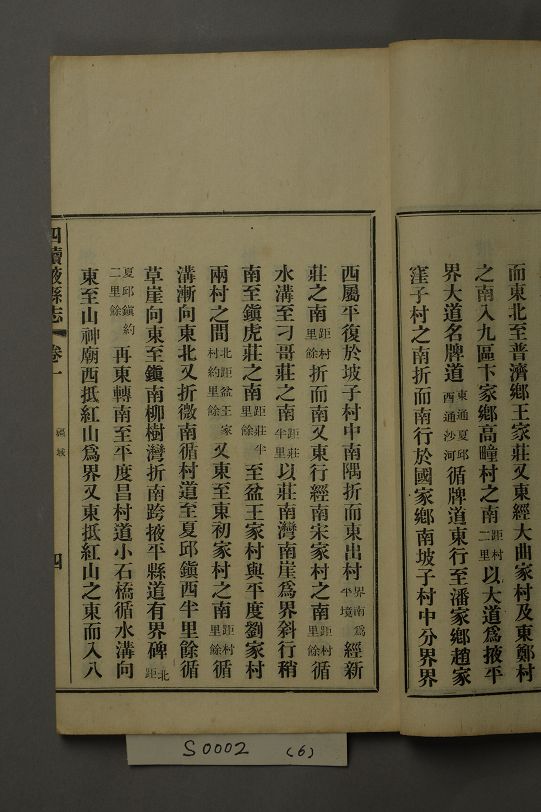 而東北至普濟鄉王家莊又東經大曲家村及東鄭村
之南入九區卞家鄉高疃村之南距村二里以大道爲掖平
界大道名牌道東通夏邱西通沙河循牌道東行至潘家鄉趙家
窪子村之南折而南行於國家鄉南坡子村中分界界
西屬平復於坡子村中南隅折而東出村界南爲平境經新
莊之南距村里餘折而南又東行經南宋家村之南距村里餘循
水溝至刁哥莊之南距莊半里以莊南灣南崖爲界斜行稍
南至鎭虎莊之南距莊半里餘至盆王家村與平度劉家村
兩村之間北距盆王家村約里餘又東至東初家村之南距村里餘循
溝漸向東北又折微南循村道至夏邱鎭西半里餘循
草崖向東至鎭南柳樹灣折南跨掖平縣道有界碑北距
夏邱鎭約二里餘再東轉南至平度昌村道小石橋循水溝向
東至山神廟西抵紅山爲界又東抵紅山之東而入八
四續掖縣志 卷一 疆域 四
S0002 (6)